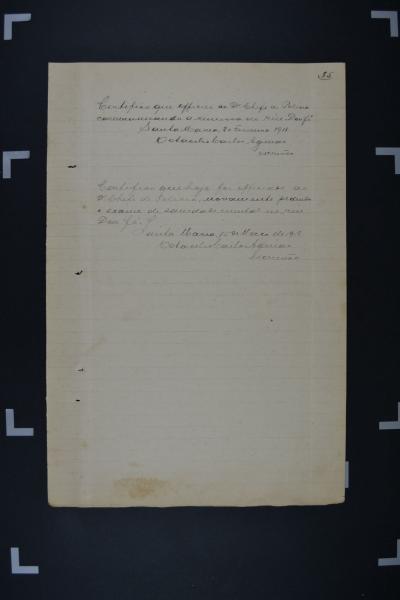 35
Certifico que officiei ao Dr Chefe de Policia
communicando a remessa do réu. Dou fé
Santa Maria, 2 Janeiro 1911
Octavio Carlos Aguiar
escrivão
Certifico que hoje foi officiado ao
Dr Chefe de Policia, novamente pedindo
o exame de sanidade mental no réu
Dou fé.
Santa Maria, 15 de Março de 191
Octavio Carlos Aguiar
escrivão